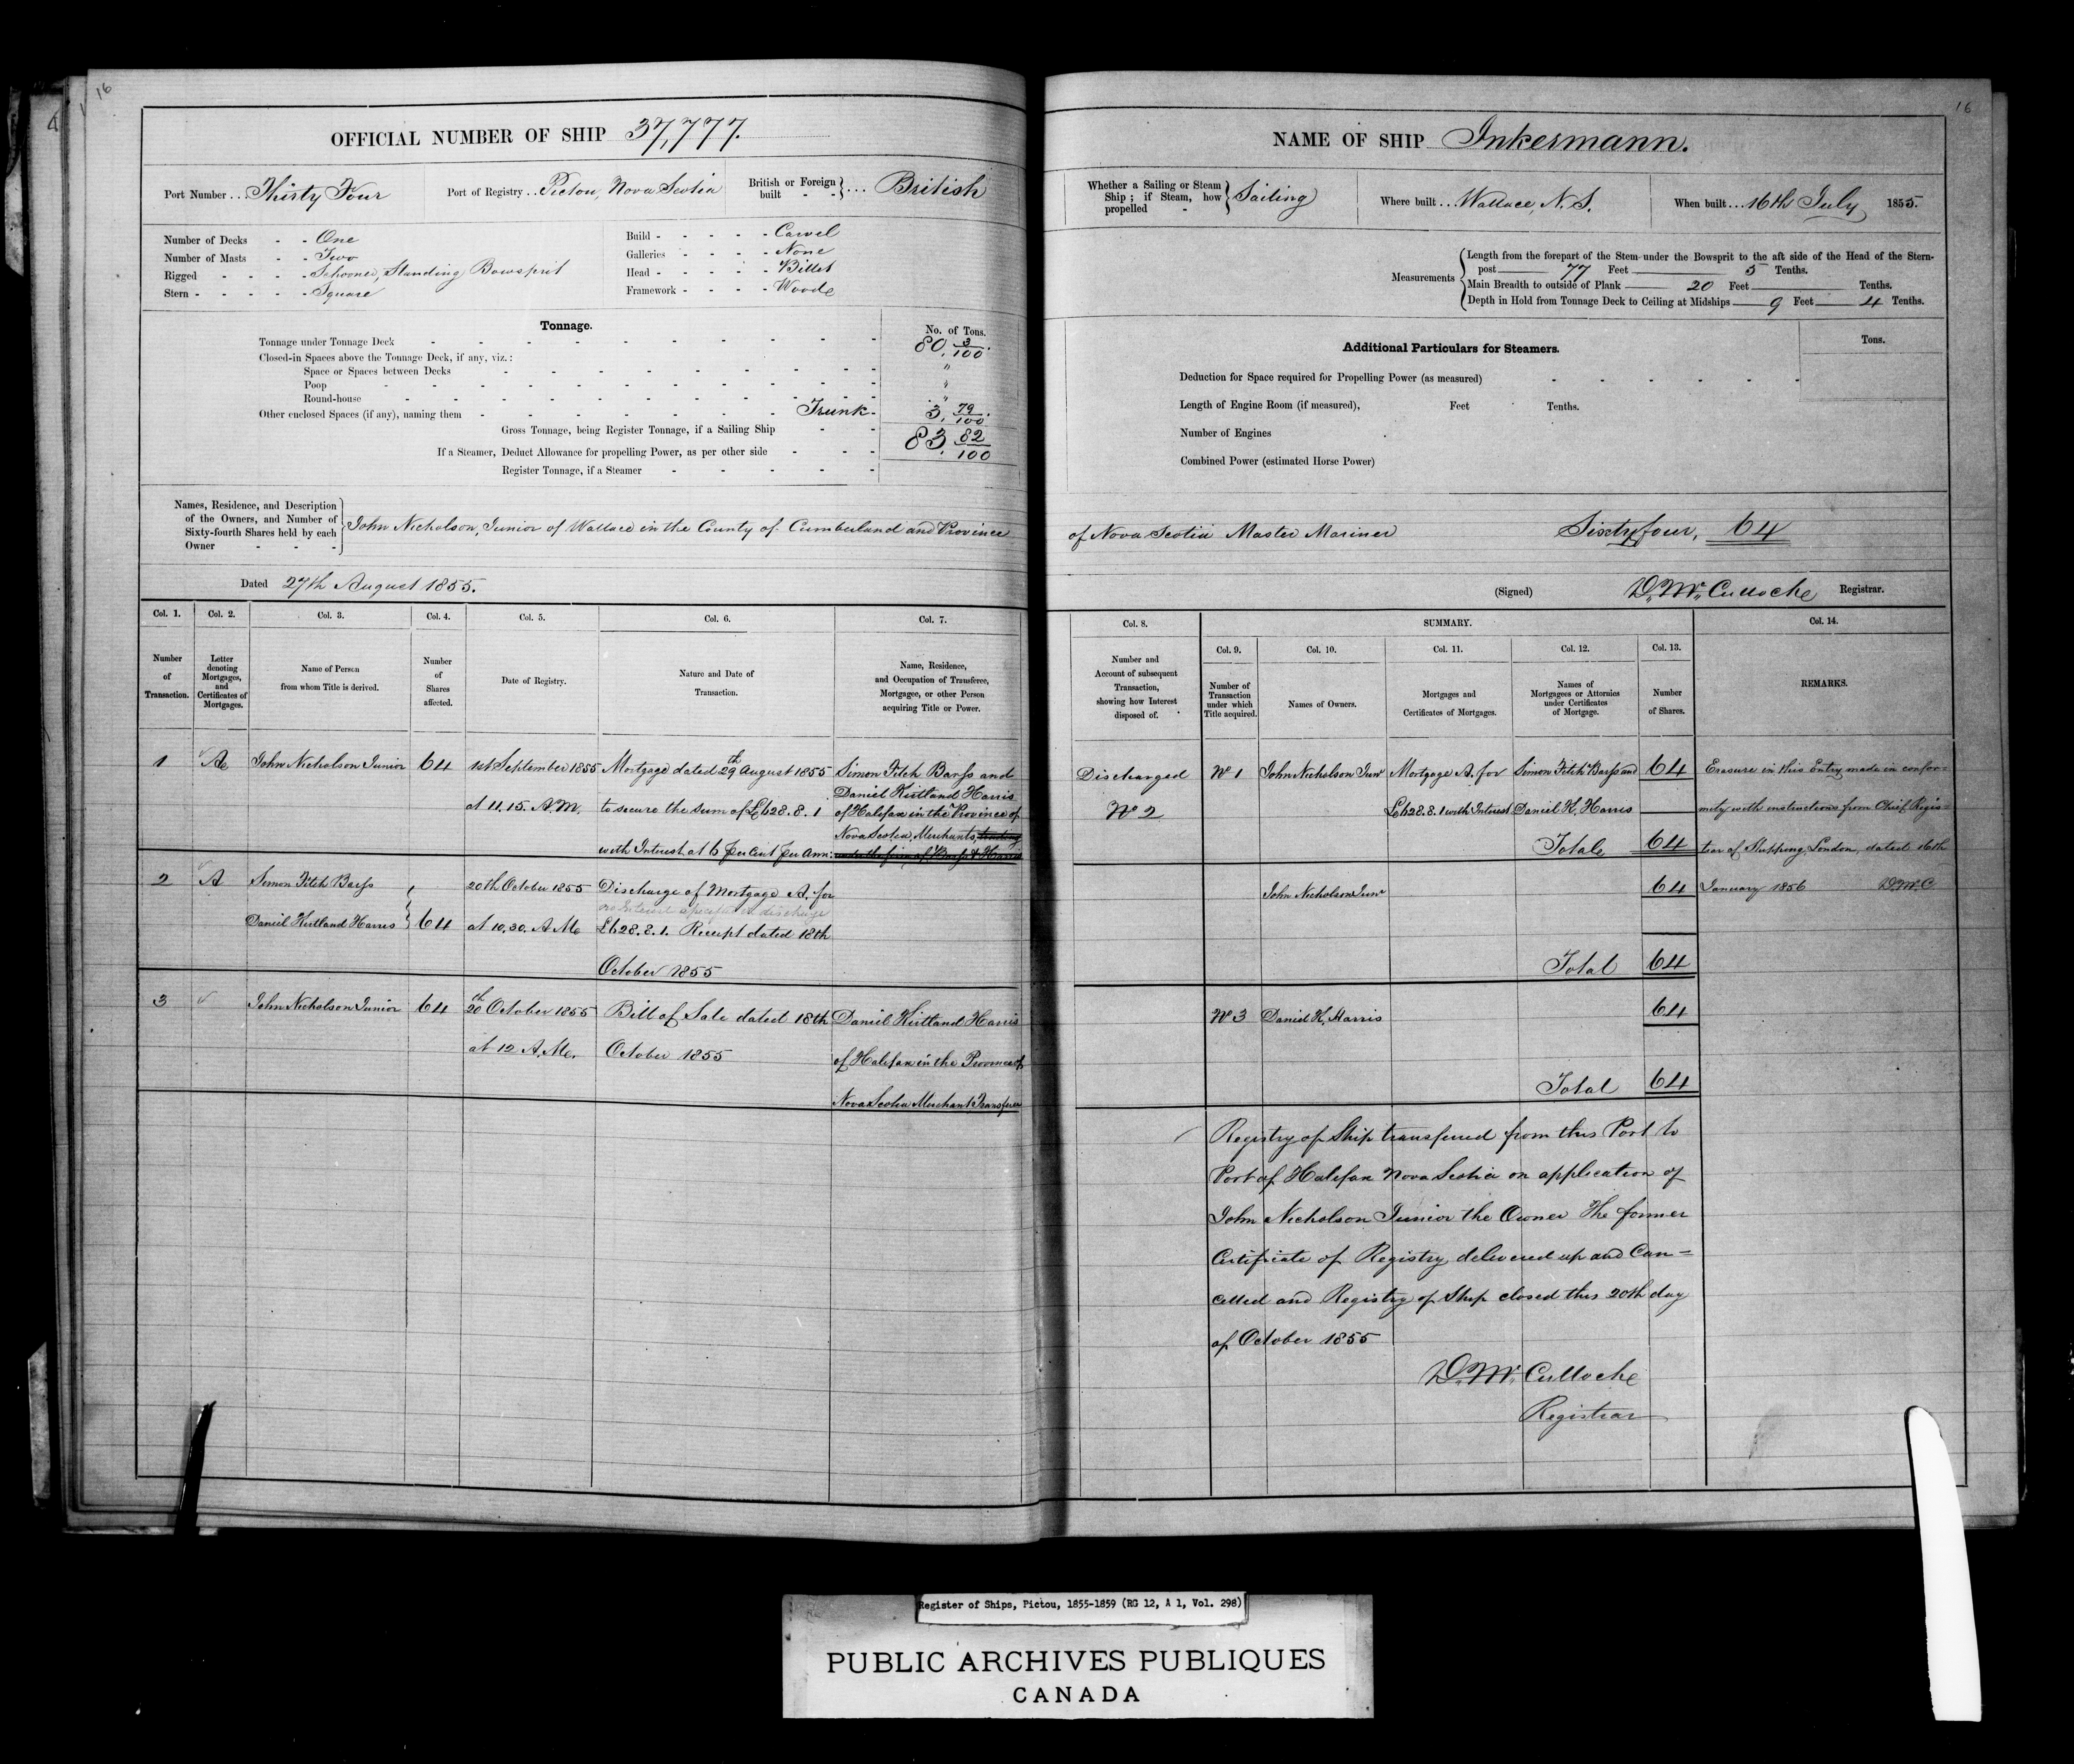 16
OFFICIAL NUMBER OF SHIP 37,777.
Port Number ... Thirty Four
Port of Registry .. Pictou, Nova Scotia
British or Foreign built - - } ... British
Number of Decks - - One
Number of Masts - - Two
Rigged - - - - Schooner, Standing Bowsprit
Stern - - - - - Square
Build - - - - - Carvel
Galleries - - - - None
Head - - - - - Billet
Framework - - - - Wood
Tonnage.
No. of Tons.
Tonnage under Tonnage Deck 80 3/100
Closed-in Spaces above the Tonnage Deck, if any, viz.:
Space or Spaces between Decks "
Poop "
Round-house "
Other enclosed Spaces (if any), naming them Trunk 3 79/100
Gross Tonnage, being Register Tonnage, if a Sailing Ship 83 82/100
If a Steamer, Deduct Allowance for propelling Power, as per other side
Register Tonnage, if a Steamer
Names, Residence, and Description
of the Owners, and Number of
Sixty-fourth Shares held by each
Owner - - -
John Nicholson, Junior of Wallace in the County of Cumberland and Province
Dated 27th August 1855.
Col. 1.
Number
of
Transaction.
Col. 2.
Letter
denoting
Mortgages,
and
Certificates of
Mortgages.
Col. 3.
Name of Person
from whom Title is derived.
Col. 4.
Number
of
Shares
affected.
Col. 5.
Date of Registry.
Col. 6.
Nature and Date of
Transaction.
Col. 7.
Name, Residence,
and Occupation of Transferee,
Mortgagee, or other Person
acquiring Title or Power.
1
A
John Nicholson Junior
64
1st September 1855
at 11.15. A.M.
Mortgage dated 29th August 1855
to secure the sum of £628.8.1
with Interest at 6 per Cent per Ann:
Simon Fitch Barss and
Daniel Kirtland Harris
of Halifax in the Province of
Nova Scotia, Merchants, trading
under the firm of Barss & Harris
2
A
Simon Fitch Barss
Daniel Kirtland Harris
64
20th October 1855
at 10.30. A.M.
Discharge of Mortgage A. for
no Interest specified in discharge
£628.8.1. Receipt dated 18th
October 1855
3
John Nicholson Junior
64
20th October 1855
at 12 A.M.
Bill of Sale dated 18th
October 1855
Daniel Kirtland Harris
of Halifax in the Province of
Nova Scotia Merchant Transferee
16
NAME OF SHIP Inkermann.
Whether a Sailing or Steam
Ship; if Steam, how
propelled - } Sailing
Where built .. Wallace, N.S.
When built ... 16th July 1855.
Measurements
Length from the forepart of the Stem under the Bowsprit to the aft side of the Head of the Stern-
post 77 Feet 5 Tenths.
Main Breadth to outside of Plank 20 Feet Tenths.
Depth in Hold from Tonnage Deck to Ceiling at Midships 9 Feet 4 Tenths.
Additional Particulars for Steamers.
Tons.
Deduction for Space required for Propelling Power (as measured)
Length of Engine Room (if measured), Feet Tenths.
Number of Engines
Combined Power (estimated Horse Power)
of Nova Scotia Master Mariner Sixty four, 64
(Signed) D. McCulloch Registrar.
Col. 8.
Number and
Account of subsequent
Transaction,
showing how Interest
disposed of.
SUMMARY.
Col. 9.
Number of
Transaction
under which
Title acquired.
Col. 10.
Names of Owners.
Col. 11.
Mortgages and
Certificates of Mortgages.
Col. 12.
Names of
Mortgagees or Attornies
under Certificates
of Mortgage.
Col. 13.
Number
of Shares.
Col. 14.
REMARKS.
Discharged
No 2
No 1
John Nicholson Junr
Mortgage A. for
£628.8.1 with Interest
Simon Fitch Barss and
Daniel K. Harris
64
Total 64
Erasure in this Entry made in confor=
mity with instructions from Chief Regis=
trar of Shipping, London, dated 16th
January 1856 D.McC
John Nicholson Junr
64
Total 64
No 3
Daniel K. Harris
64
Total 64
Registry of Ship transferred from this Port to
Port of Halifax Nova Scotia on application of
John Nicholson Junior the Owner The former
Certificate of Registry delivered up and Can=
celled and Registry of Ship closed this 20th day
of October 1855
D. McCulloch
Registrar
Register of Ships, Pictou, 1855-1859 (RG 12, A 1, Vol. 298)
PUBLIC ARCHIVES PUBLIQUES
CANADA